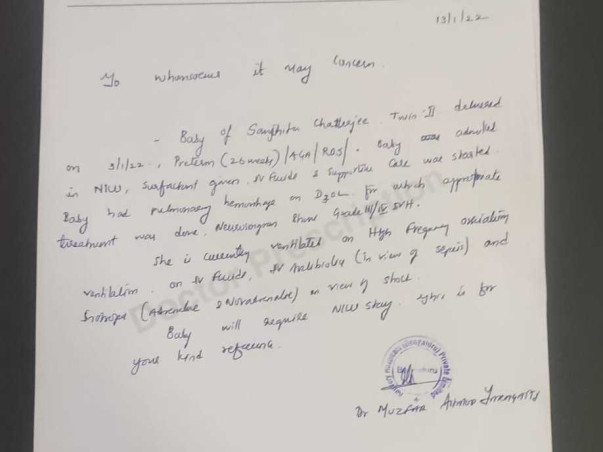 13/1/22
To whomsoever it may concern
- Baby of Sanghita Chatterjee. Twin-II delivered
on 9/1/22, Preterm (26 weeks) /AGA/RDS/. Baby was admitted
in NICU, surfactant given. IV fluids & supportive care was started.
Baby had pulmonary hemorrhage on D3OL for which appropriate
treatment was done. Neurosonogram shows Grade III/IV IVH.
She is currently ventilated on High Frequency oscillation
ventilation. on IV fluids, IV Antibiotics (in view of sepsis) and
Inotrope (Adrenaline & Noradrenaline) in view of shock.
Baby will require NICU stay. This is for
your kind reference.
Doctor Prescription
Private Limited
Dr MUZFAR AHMAD